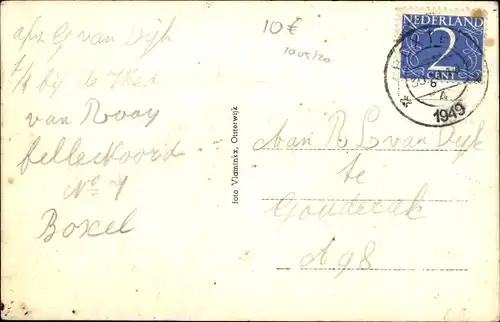 afz G van Dijk
bij de Wed
van Rooy
No 7
Boxel
10€
foto Vlaminkx, Oisterwijk
NEDERLAND
2
CENT
1949
Aan R L van Dijk
te
Gouderak
A 98